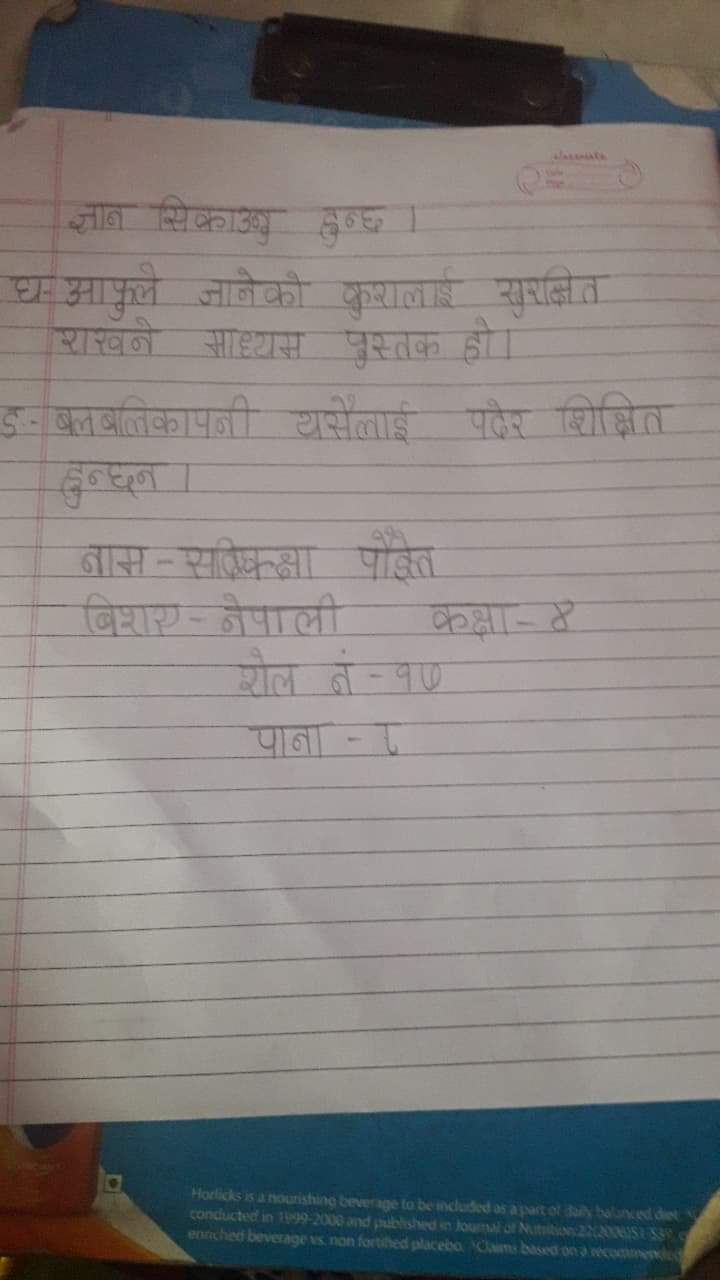 classmate
Date
Page
ज्ञान सिकाउनु हुन्छ ।
घ- आफुले जानेको कुरालाई सुरक्षित
राखने माध्यम पुस्तक हो।
ङ- बलबलिकापनी यसैलाई पढेर शिक्षित
हुन्छन ।
नाम - पौडेल
बिशए - नेपाली कक्षा - ४
रोल नं - १७
पाना - ८
Horlicks is a nourishing beverage to be included as a part of daily balanced diet.
conducted in 1999-2000 and published in Journal of Nutrition;22(2006)S1-S39,
enriched beverage vs. non fortified placebo. ^Claims based on a recommended